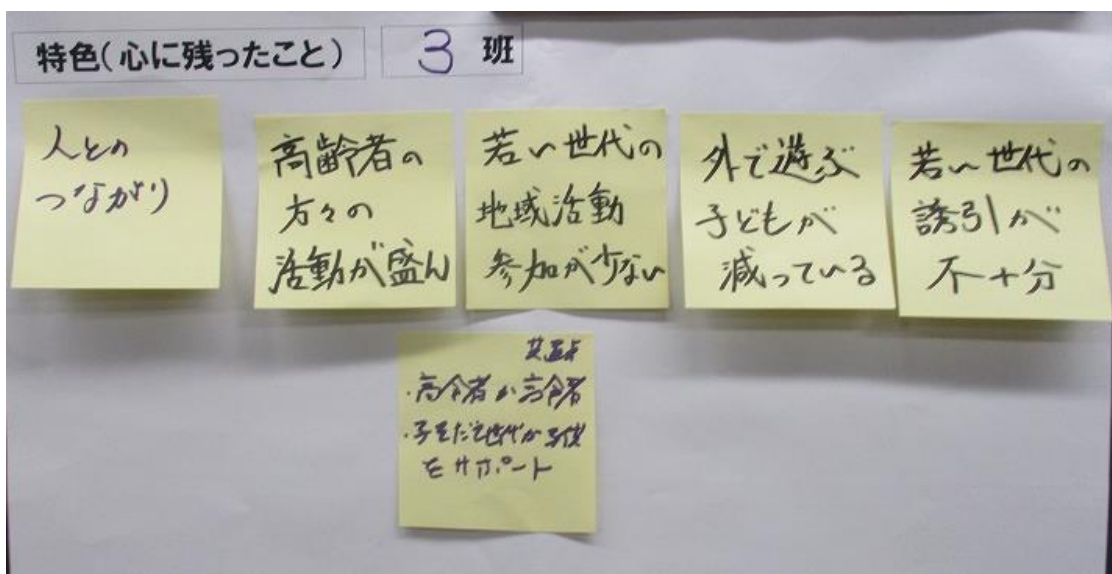 特色(心に残ったこと)
3 班
人との
つながり
高齢者の
方々の
活動が盛ん
若い世代の
地域活動
参加が少ない
外で遊ぶ
子どもが
減っている
若い世代の
誘引が
不十分
・高令者が高令者
・子そだて世代が子供
をサポート